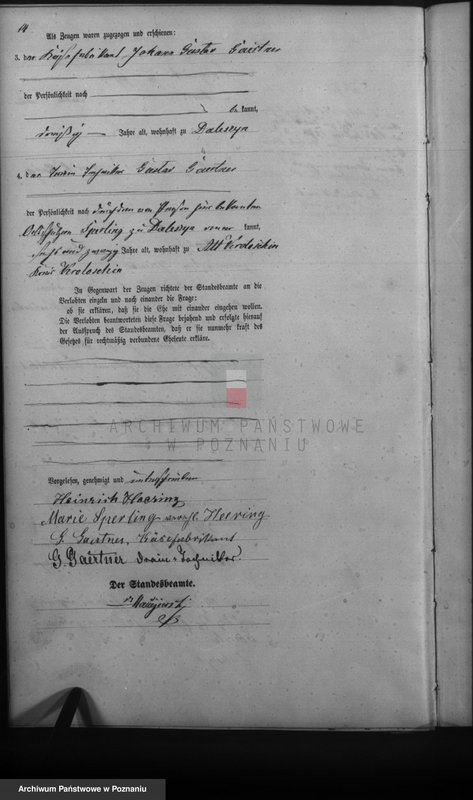 14
Als Zeugen waren zugezogen und erschienen:
3. der Käsefabrikant Johann Gustav Gaertner
der Persönlichkeit nach
be kannt,
dreißig Jahre alt, wohnhaft zu Dalewyn
4. der Drain Techniker Gustav Gaertner
der Persönlichkeit nach durch den von Person hier bekannten
Sperling zu Dalewyn kannt,
sechs und zwanzig Jahre alt, wohnhaft zu Alt Kroloschin
Kreis Kroloschin
In Gegenwart der Zeugen richtete der Standesbeamte an die
Verlobten einzeln und nach einander die Frage:
ob sie erklären, daß sie die Ehe mit einander eingehen wollen.
Die Verlobten beantworteten diese Frage bejahend und erfolgte hierauf
der Ausspruch des Standesbeamten, daß er sie nunmehr kraft des
Gesetzes für rechtmäßig verbundene Eheleute erkläre.
ARCHIWUM PAŃSTWOWE
W POZNANIU
Vorgelesen, genehmigt und unterschrieben
Heinrich Haering
Marie Sperling verehl. Herring
G. Gaertner, Käsefabrikant
G. Gaertner Drain-Techniker.
Der Standesbeamte.
Archiwum Państwowe w Poznaniu